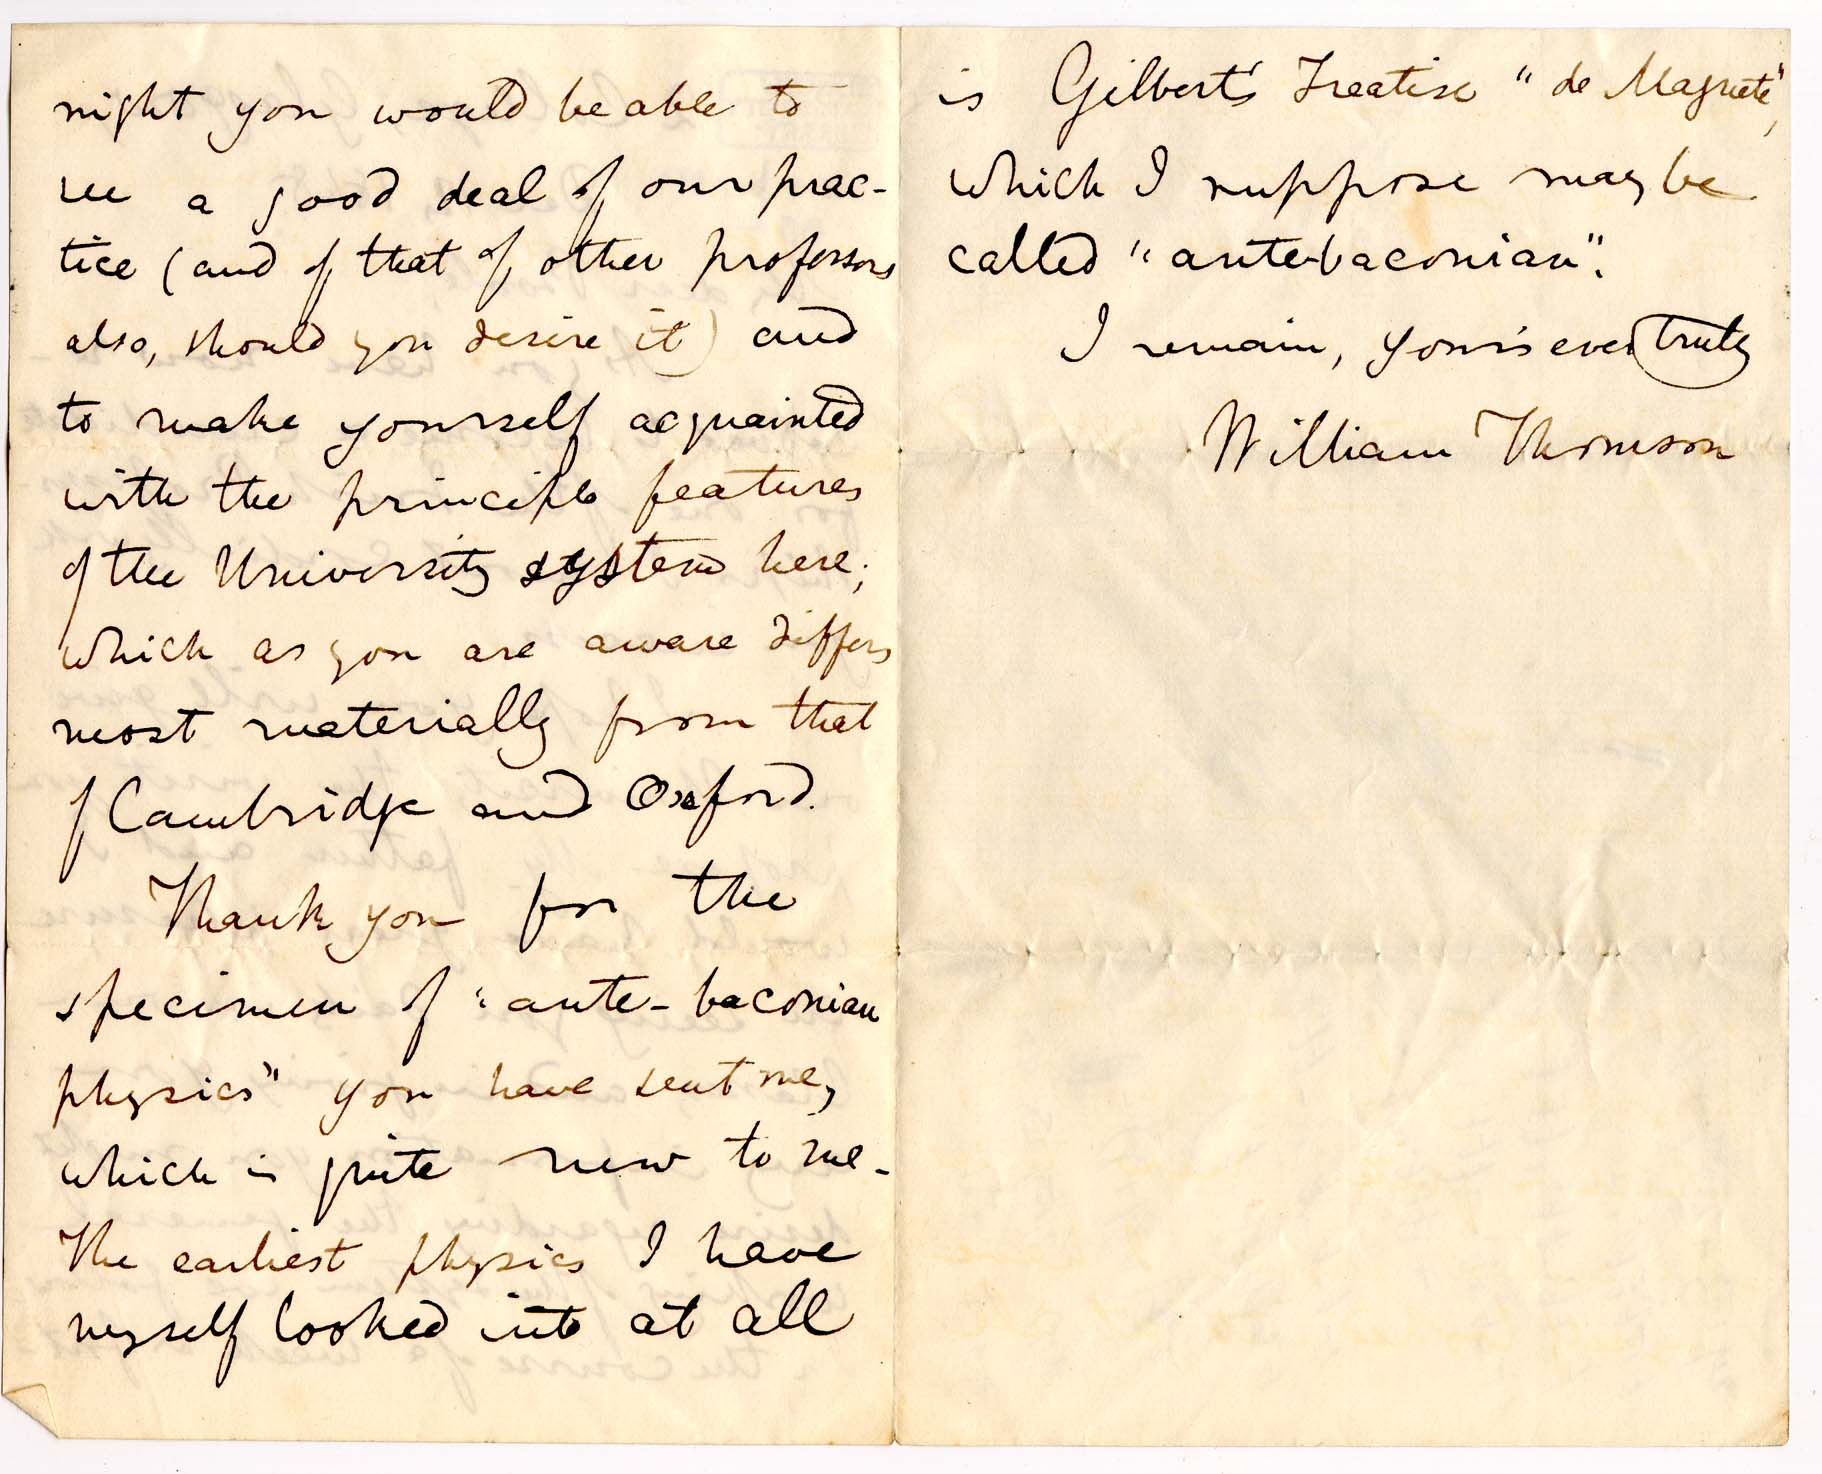 night you would be able to
see a good deal of our prac-
tice (and of that of other professors
also, should you desire it) and
to make yourself acquainted
with the principle features
of the University system here;
which as you are aware differs
most materially from that
of Cambridge and Oxford.
Thank you for the
specimen of "ante-baconian
physics" you have sent me,
which is quite new to me -
The earliest physics I have
myself looked into at all
is Gilbert's Treatise "de Magnete",
which I suppose may be
called "ante-baconian".
I remain, yours ever truly
William Thomson